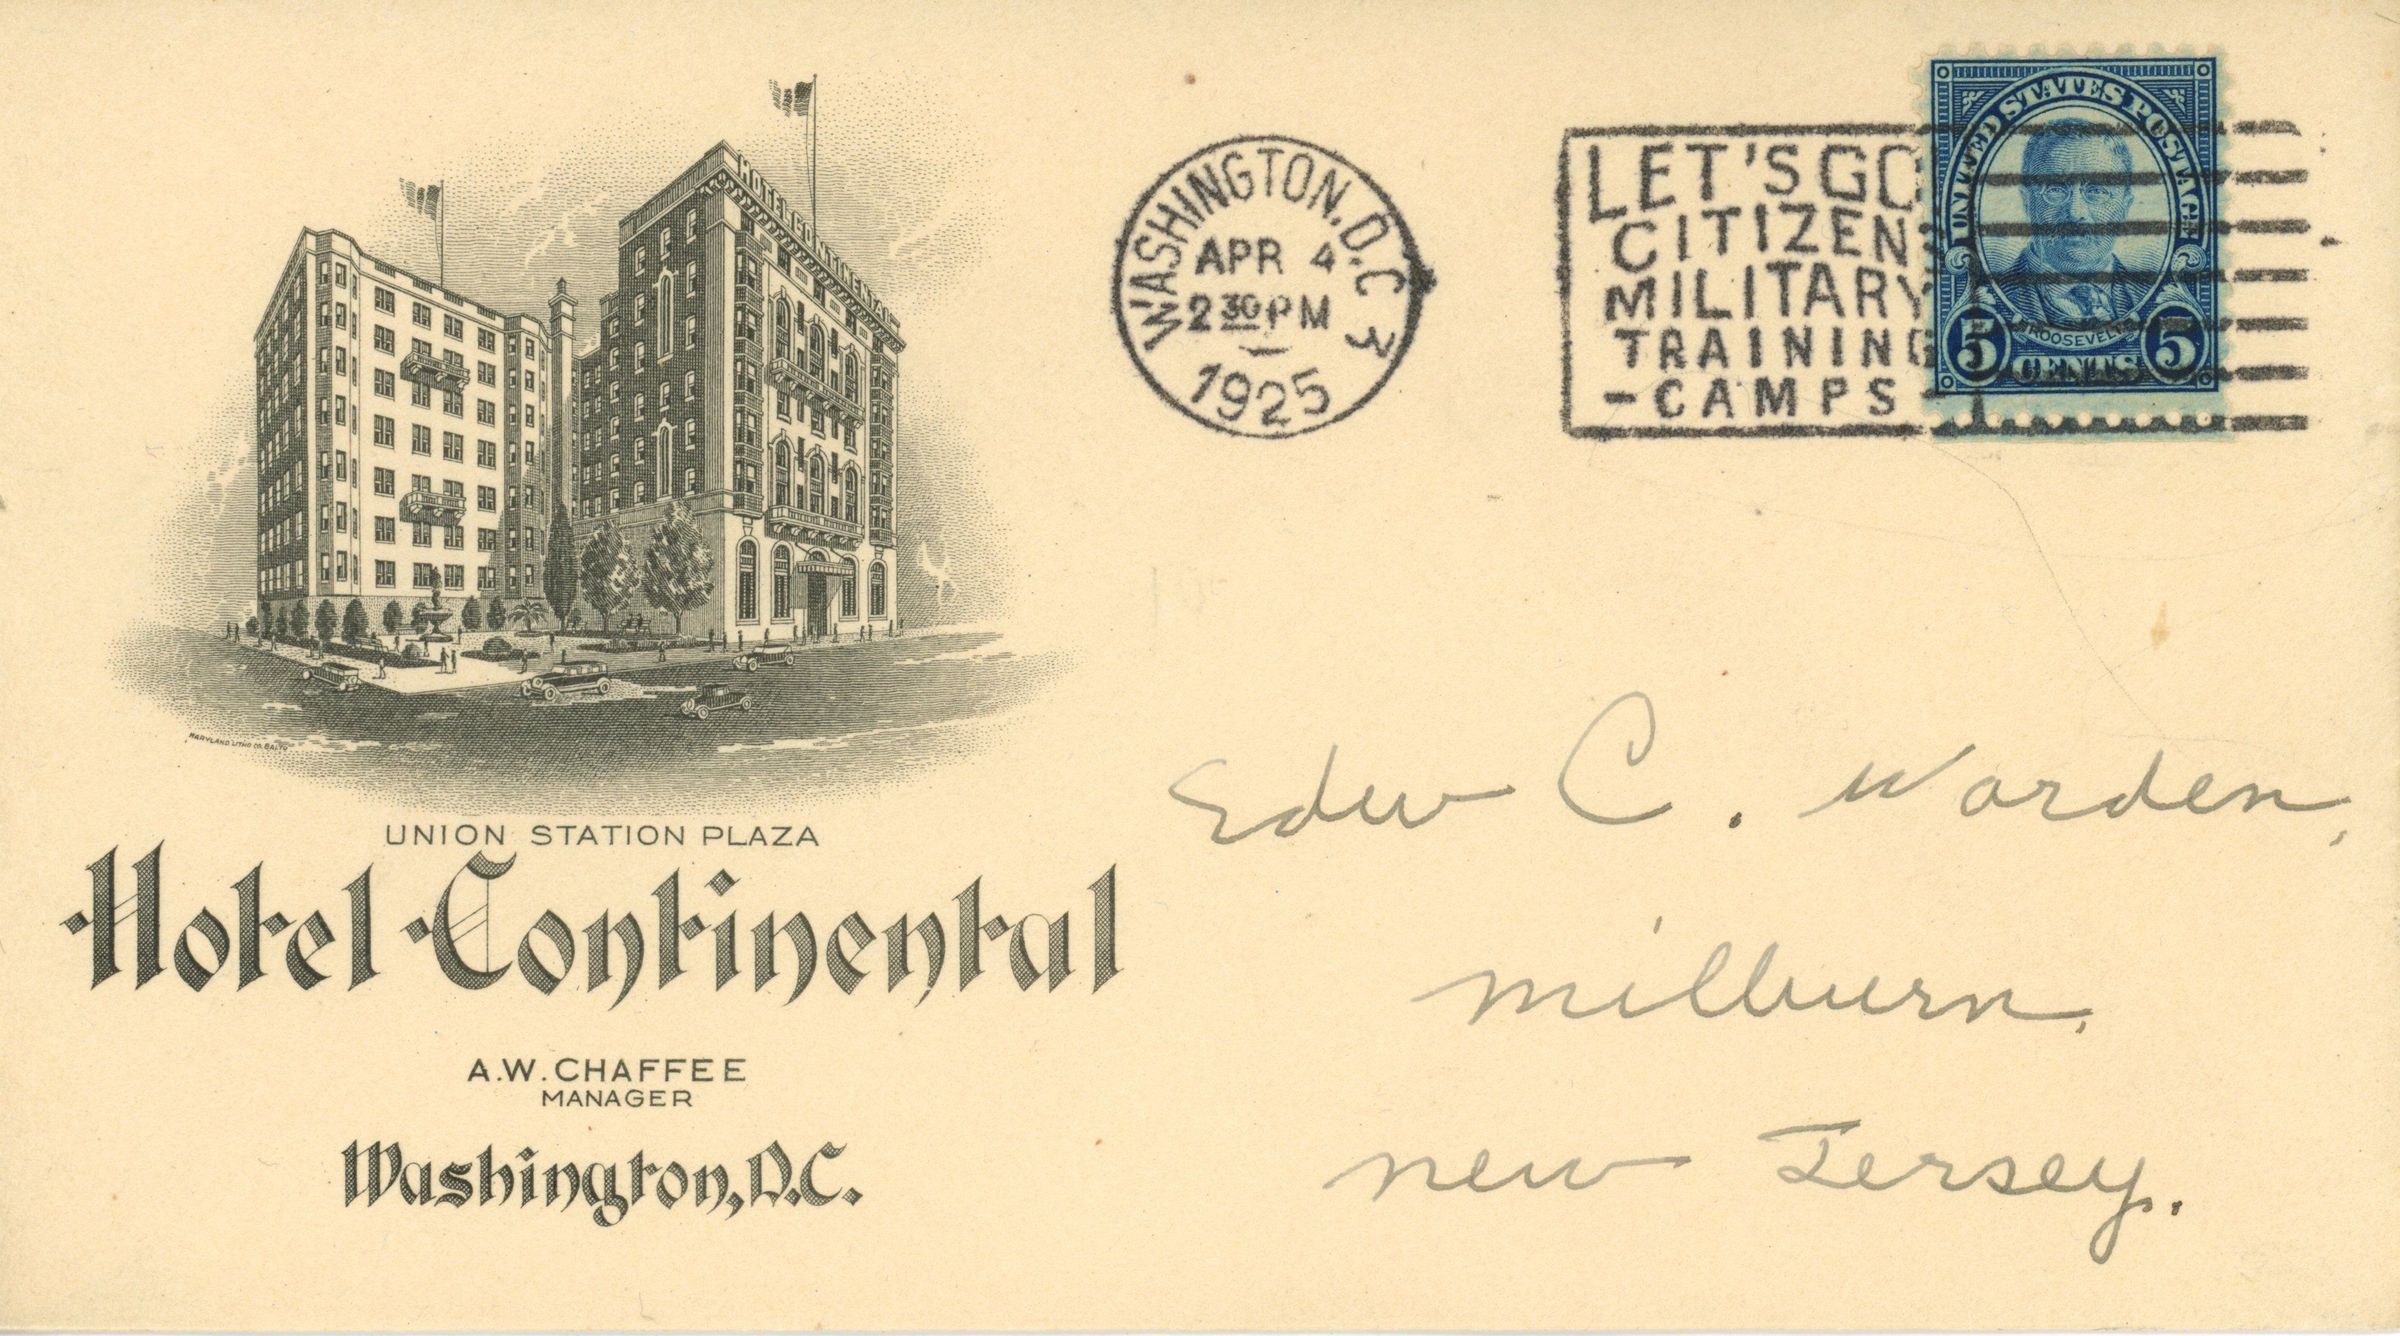 HOTEL CONTINENTAL
MARYLAND LITHO. CO. BALTO.
UNION STATION PLAZA
Hotel Continental
A.W. CHAFFEE
MANAGER
Washington, D.C.
WASHINGTON, D.C. 3
APR 4
2 30 PM
1925
LET'S GO
CITIZENS
MILITARY
TRAINING
-CAMPS-
UNITED STATES POSTAGE
ROOSEVELT
5 CENTS 5
Edw C. Worden,
Milburn,
New Jersey.